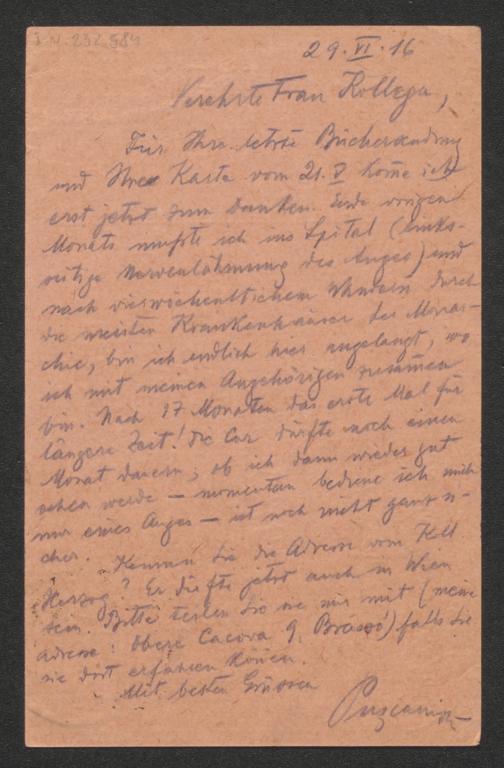 I.N. 232.584
29.VI.16
Verehrte Frau Kollega,
Für Ihre letzte Büchersendung
und Ihre Karte vom 21.V kom̅e ich
erst jetzt zum Danken. Ende vorigen
Monats mußte ich ins Spital (links-
seitige Nervenlähmung des Auges) und
nach vierwöchentlichem Wandern durch
die meisten Krankenhäuser der Monar-
chie, bin ich endlich hier angelangt, wo
ich mit meinen Angehörigen zusammen
bin. Nach 17 Monaten das erste Mal für
längere Zeit! Die Cur dürfte noch einen
Monat dauern; ob ich dann wieder gut
sehen werde – momentan bediene ich mich
nur eines Auges – ist noch nicht ganz si-
cher. Kennen Sie die Adresse vom Koll
Herzog? Er dürfte jetzt auch in Wien
sein. Bitte teilen Sie sie mir mit (meine
Adresse: Obere Cacova 9, Brassó) falls Sie
sie dort erfahren können.
Mit besten Grüssen
Puscariu